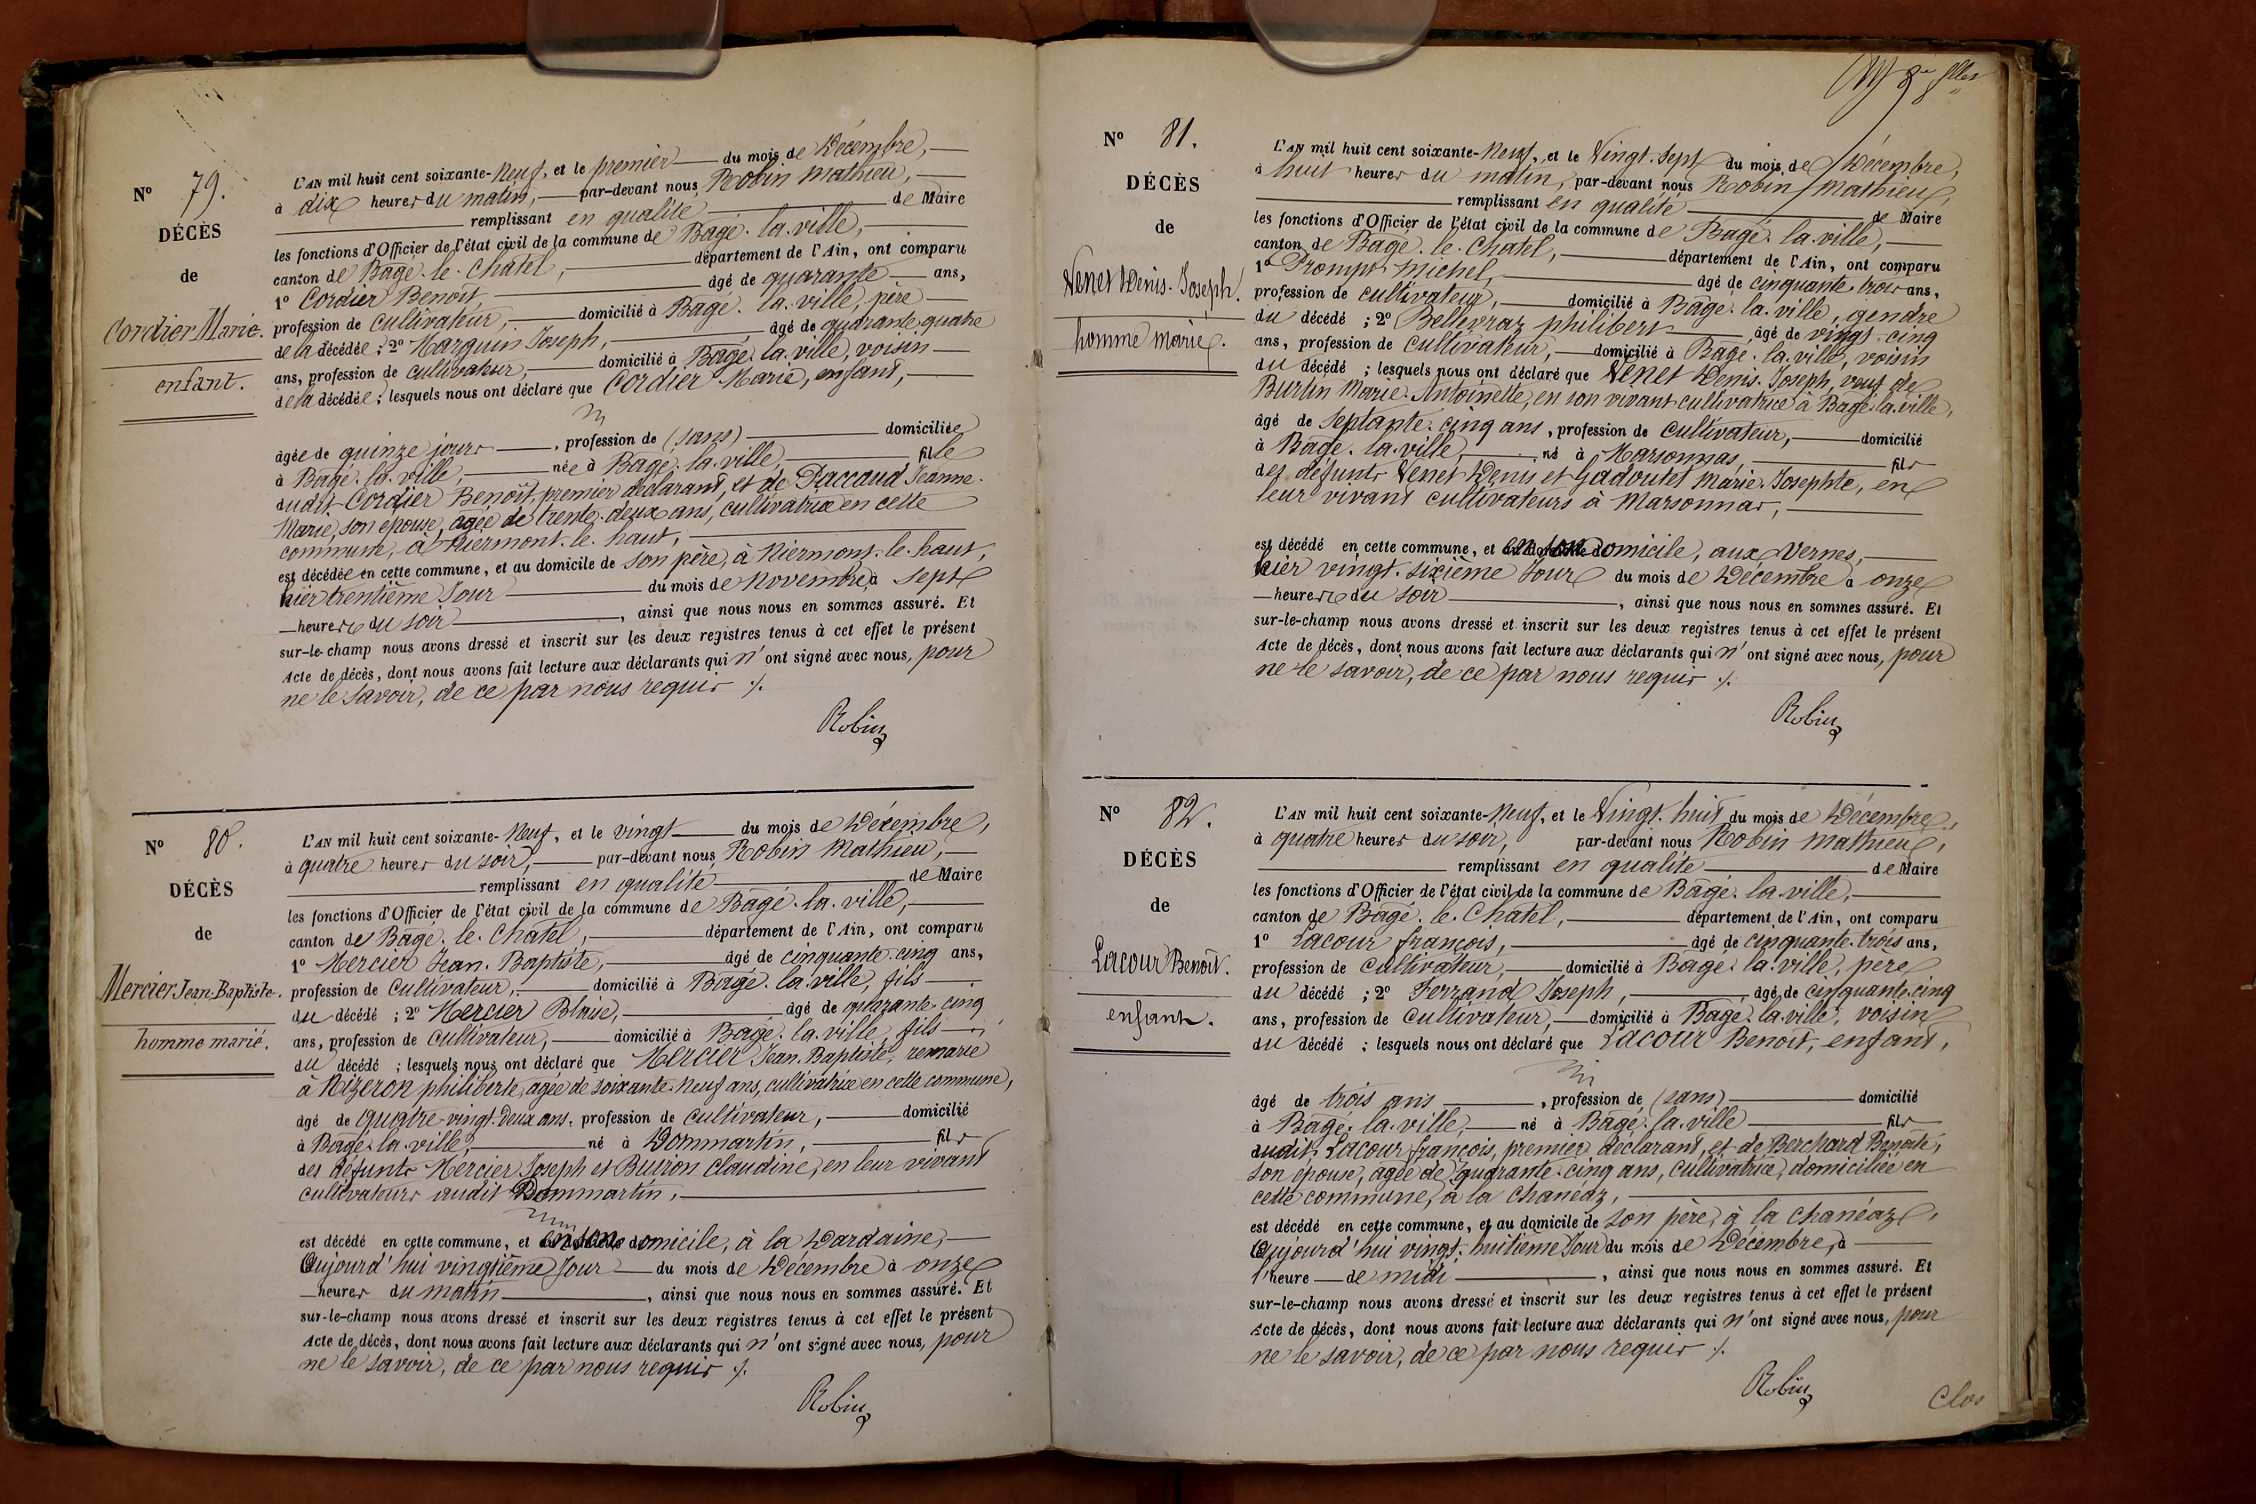 Nº 79.
DÉCÈS
de
Cordier Marie.
enfant.
L'AN mil huit cent soixante-neuf, et le premier du mois de Décembre,
à dix heures du matin, par-devant nous Robin Mathieu,
remplissant en qualité de Maire
les fonctions d'Officier de l'état civil de la commune de Bagé-la-ville,
canton de Bagé-le-Chatel, département de l'Ain, ont comparu
1º Cordier Benoît, âgé de quarante ans,
profession de cultivateur, domicilié à Bagé-la-ville, père
de la décédée ; 2º Marguin Joseph, âgé de quarante-quatre
ans, profession de cultivateur, domicilié à Bagé-la-ville, voisin
de la décédée ; lesquels nous ont déclaré que Cordier Marie, enfant,
âgée de quinze jours, profession de (sans) domiciliée
à Bagé-la-ville, née à Bagé-la-ville, fille
dudit Cordier Benoît, premier déclarant, et de Daccaud Jeanne-
Marie, son épouse, agée de trente-deux ans, cultivatrice en cette
commune, à Niermont-le-haut,
est décédée en cette commune, et au domicile de son père, à Niermont-le-haut,
hier trentième Jour du mois de Novembre, à sept
heures du soir, ainsi que nous nous en sommes assuré. Et
sur-le-champ nous avons dressé et inscrit sur les deux registres tenus à cet effet le présent
Acte de décès, dont nous avons fait lecture aux déclarants qui n'ont signé avec nous, pour
ne le savoir, de ce par nous requis ./.
Robin
Nº 80.
DÉCÈS
de
Mercier Jean-Baptiste.
homme marié.
L'AN mil huit cent soixante-neuf, et le vingt du mois de Décembre,
à quatre heures du soir, par-devant nous Robin Mathieu,
remplissant en qualité de Maire
les fonctions d'Officier de l'état civil de la commune de Bagé-la-ville,
canton de Bagé-le-Chatel, département de l'Ain, ont comparu
1º Mercier Jean-Baptiste, âgé de cinquante-cinq ans,
profession de cultivateur, domicilié à Bagé-la-ville, fils
du décédé ; 2º Mercier Blaise, âgé de quarante-cinq
ans, profession de cultivateur, domicilié à Bagé-la-ville, fils
du décédé ; lesquels nous ont déclaré que Mercier Jean-Baptiste, remarié
à Nizeron philiberte, agée de soixante-neuf ans, cultivatrice en cette commune,
âgé de quatre-vingt-deux ans, profession de cultivateur, domicilié
à Bagé-la-ville, né à Dommartin, fils
des défunts Mercier Joseph et Buiron Claudine, en leur vivant
cultivateurs audit Dommartin,
est décédé en cette commune, et en son domicile, à la Dardaine,
Aujourd'hui vingtième Jour du mois de Décembre à onze
heures du matin, ainsi que nous nous en sommes assuré. Et
sur-le-champ nous avons dressé et inscrit sur les deux registres tenus à cet effet le présent
Acte de décès, dont nous avons fait lecture aux déclarants qui n'ont signé avec nous, pour
ne le savoir, de ce par nous requis ./.
Robin
Nº 81.
DÉCÈS
de
Venet Denis-Joseph.
homme marié.
L'AN mil huit cent soixante-neuf, et le Vingt-Sept du mois de Décembre,
à huit heures du matin, par-devant nous Robin Mathieu,
remplissant en qualité de Maire
les fonctions d'Officier de l'état civil de la commune de Bagé-la-ville,
canton de Bagé-le-Chatel, département de l'Ain, ont comparu
1º Prompt Michel, âgé de cinquante-trois ans,
profession de cultivateur, domicilié à Bagé-la-ville, gendre
du décédé ; 2º Bellevraz philibert, âgé de vingt-cinq
ans, profession de cultivateur, domicilié à Bagé-la-ville, voisin
du décédé ; lesquels nous ont déclaré que Venet Denis-Joseph, veuf de
Burtin Marie-Antoinette, en son vivant cultivatrice à Bagé-la-ville,
âgé de Septante-cinq ans, profession de cultivateur, domicilié
à Bagé-la-ville, né à Marsonnas, fils
des défunts Venet Denis et Gadoutet Marie-Josephte, en
leur vivant cultivateurs à Marsonnas,
est décédé en cette commune, et en son domicile, aux Vernes,
hier vingt-sixième Jour du mois de Décembre à onze
heures du soir, ainsi que nous nous en sommes assuré. Et
sur-le-champ nous avons dressé et inscrit sur les deux registres tenus à cet effet le présent
Acte de décès, dont nous avons fait lecture aux déclarants qui n'ont signé avec nous, pour
ne le savoir, de ce par nous requis ./.
Robin
Nº 82.
DÉCÈS
de
Lacour Benoît.
enfant.
L'AN mil huit cent soixante-neuf, et le Vingt-huit du mois de Décembre,
à quatre heures du soir, par-devant nous Robin Mathieu,
remplissant en qualité de Maire
les fonctions d'Officier de l'état civil de la commune de Bagé-la-ville,
canton de Bagé-le-Chatel, département de l'Ain, ont comparu
1º Lacour françois, âgé de cinquante-trois ans,
profession de cultivateur, domicilié à Bagé-la-ville, père
du décédé ; 2º Ferrand Joseph, âgé de cinquante-cinq
ans, profession de cultivateur, domicilié à Bagé-la-ville, voisin
du décédé ; lesquels nous ont déclaré que Lacour Benoît, enfant,
âgé de trois ans, profession de (sans) domicilié
à Bagé-la-ville, né à Bagé-la-ville fils
dudit Lacour françois, premier déclarant, et de Berchard Benoite,
son épouse, agée de quarante-cinq ans, cultivatrice, domiciliée en
cette commune, à la Chanéaz,
est décédé en cette commune, et au domicile de son père, à la Chanéaz,
Aujourd'hui vingt-huitième Jour du mois de Décembre, à
l'heure de midi, ainsi que nous nous en sommes assuré. Et
sur-le-champ nous avons dressé et inscrit sur les deux registres tenus à cet effet le présent
Acte de décès, dont nous avons fait lecture aux déclarants qui n'ont signé avec nous, pour
ne le savoir, de ce par nous requis ./.
Robin
Clos